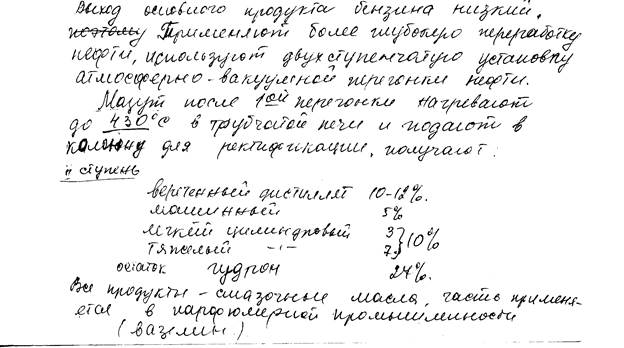 Выход основного продукта бензина низкий,
поэтому Применяют более глубокую переработку
нефти, используют двухступенчатую установку
атмосферно-вакуумной перегонки нефти.
Мазут после 1ой перегонки нагревают
до 430°C в трубчатой печи и подают в
колонну для ректификации, получают:
II ступень
веретенный дистиллят 10-12%.
машинный 5%
легкий цилиндровый 3 } 10%
тяжелый -"- 7
остаток гудрон 24%.
Все продукты - смазочные масла, часть применя-
ется в парфюмерной промышленности
(вазелин.)